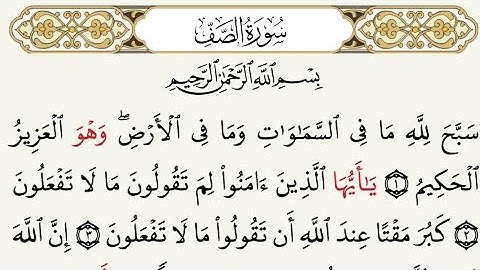 سُورَةُ الصَّفِّ
بِسْمِ اللَّهِ الرَّحْمَٰنِ الرَّحِيمِ
سَبَّحَ لِلَّهِ مَا فِى السَّمَٰوَٰتِ وَمَا فِى الْأَرْضِ ۖ وَهْوَ الْعَزِيزُ
الْحَكِيمُ ۝١ يَٰأَيُّهَا الَّذِينَ ءَامَنُوا لِمَ تَقُولُونَ مَا لَا تَفْعَلُونَ
۝٢ كَبُرَ مَقْتًا عِندَ اللَّهِ أَن تَقُولُوا مَا لَا تَفْعَلُونَ ۝٣ إِنَّ اللَّهَ